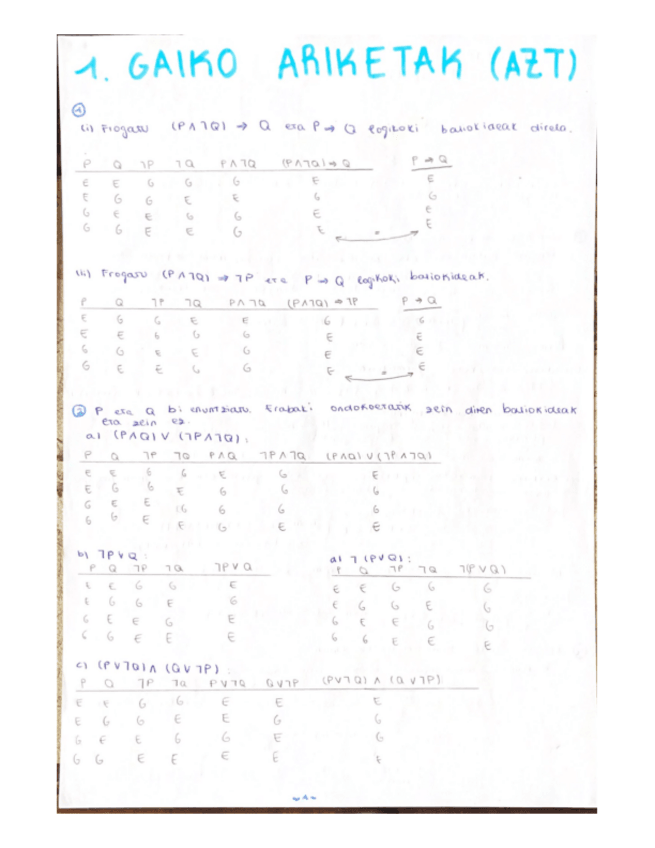 1. GAIKO ARIKETAK (AZT)
1
(i) Frogatu (P∧¬Q) → Q eta P→ Q logikoki baliokideak direla.
P Q ¬P ¬Q P∧¬Q (P∧¬Q)→Q P→Q
E E G G G E E
E G G E E G G
G E E G G E E
G G E E G E E
(ii) Frogatu (P∧¬Q) → ¬P eta P→Q logikoki baliokideak.
P Q ¬P ¬Q P∧¬Q (P∧¬Q)→¬P P→Q
E G G E E G G
E E G G G E E
G G E E G E E
G E E G G E E
2 P eta Q bi enuntziatu. Erabaki ondokoetarik zein diren baliokideak
eta zein ez.
a) (P∧Q)∨(¬P∧¬Q):
P Q ¬P ¬Q P∧Q ¬P∧¬Q (P∧Q)∨(¬P∧¬Q)
E E G G E G E
E G G E G G G
G E E G G G G
G G E E G E E
b) ¬P∨Q:
P Q ¬P ¬Q ¬P∨Q
E E G G E
E G G E G
G E E G E
G G E E E
d) ¬(P∨Q):
P Q ¬P ¬Q ¬(P∨Q)
E E G G G
E G G E G
G E E G G
G G E E E
c) (P∨¬Q)∧(Q∨¬P):
P Q ¬P ¬Q P∨¬Q Q∨¬P (P∨¬Q)∧(Q∨¬P)
E E G G E E E
E G G E E G G
G E E G G E G
G G E E E E E
-1-